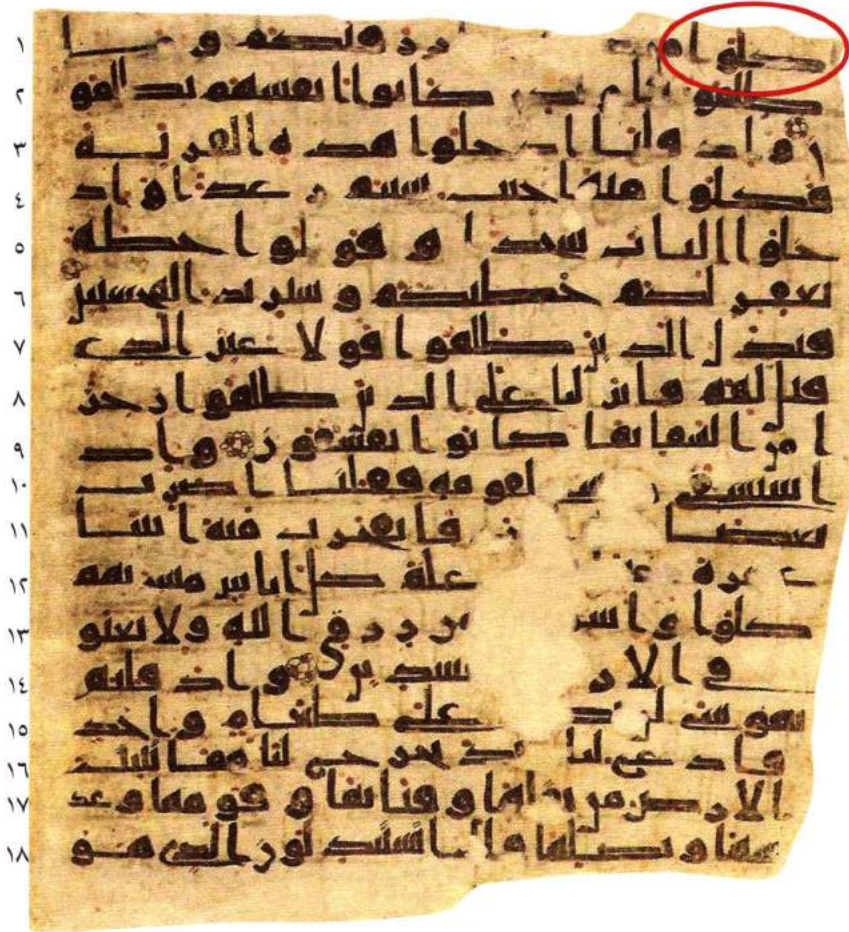 كلوا رزقنكم و ما ١
ظلمو كانوا انفسهم يظلمو ٢
ن واذ قلنا ادخلوا هذه القرية ٣
فكلوا منها حيث شئتم رغدا واد ٤
خلوا الباب سجدا و قولوا حطة ٥
نغفر لكم خطيكم وسنزيد المحسنين ٦
فبدل الذين ظلموا قولا غير الذي ٧
قيل لهم فانزلنا على الذين ظلموا رجز ٨
ا من السما بما كانوا يفسقون واذ ٩
استسقى لقومه فقلنا اضرب ١٠
بعصا فانفجرت منه اثنتا ١١
عشرة عينا علم كل اناس مشربهم ١٢
كلوا واشر من رزق الله ولا تعثو ١٣
في الار سدين واذ قلتم ١٤
يموسى لن على طعام واحد ١٥
فادع لنا يخرج لنا مما تنبت ١٦
الارض من بقلها وقثائها وفومها وعد ١٧
سها وبصلها قال اتستبدلون الذي هو ١٨